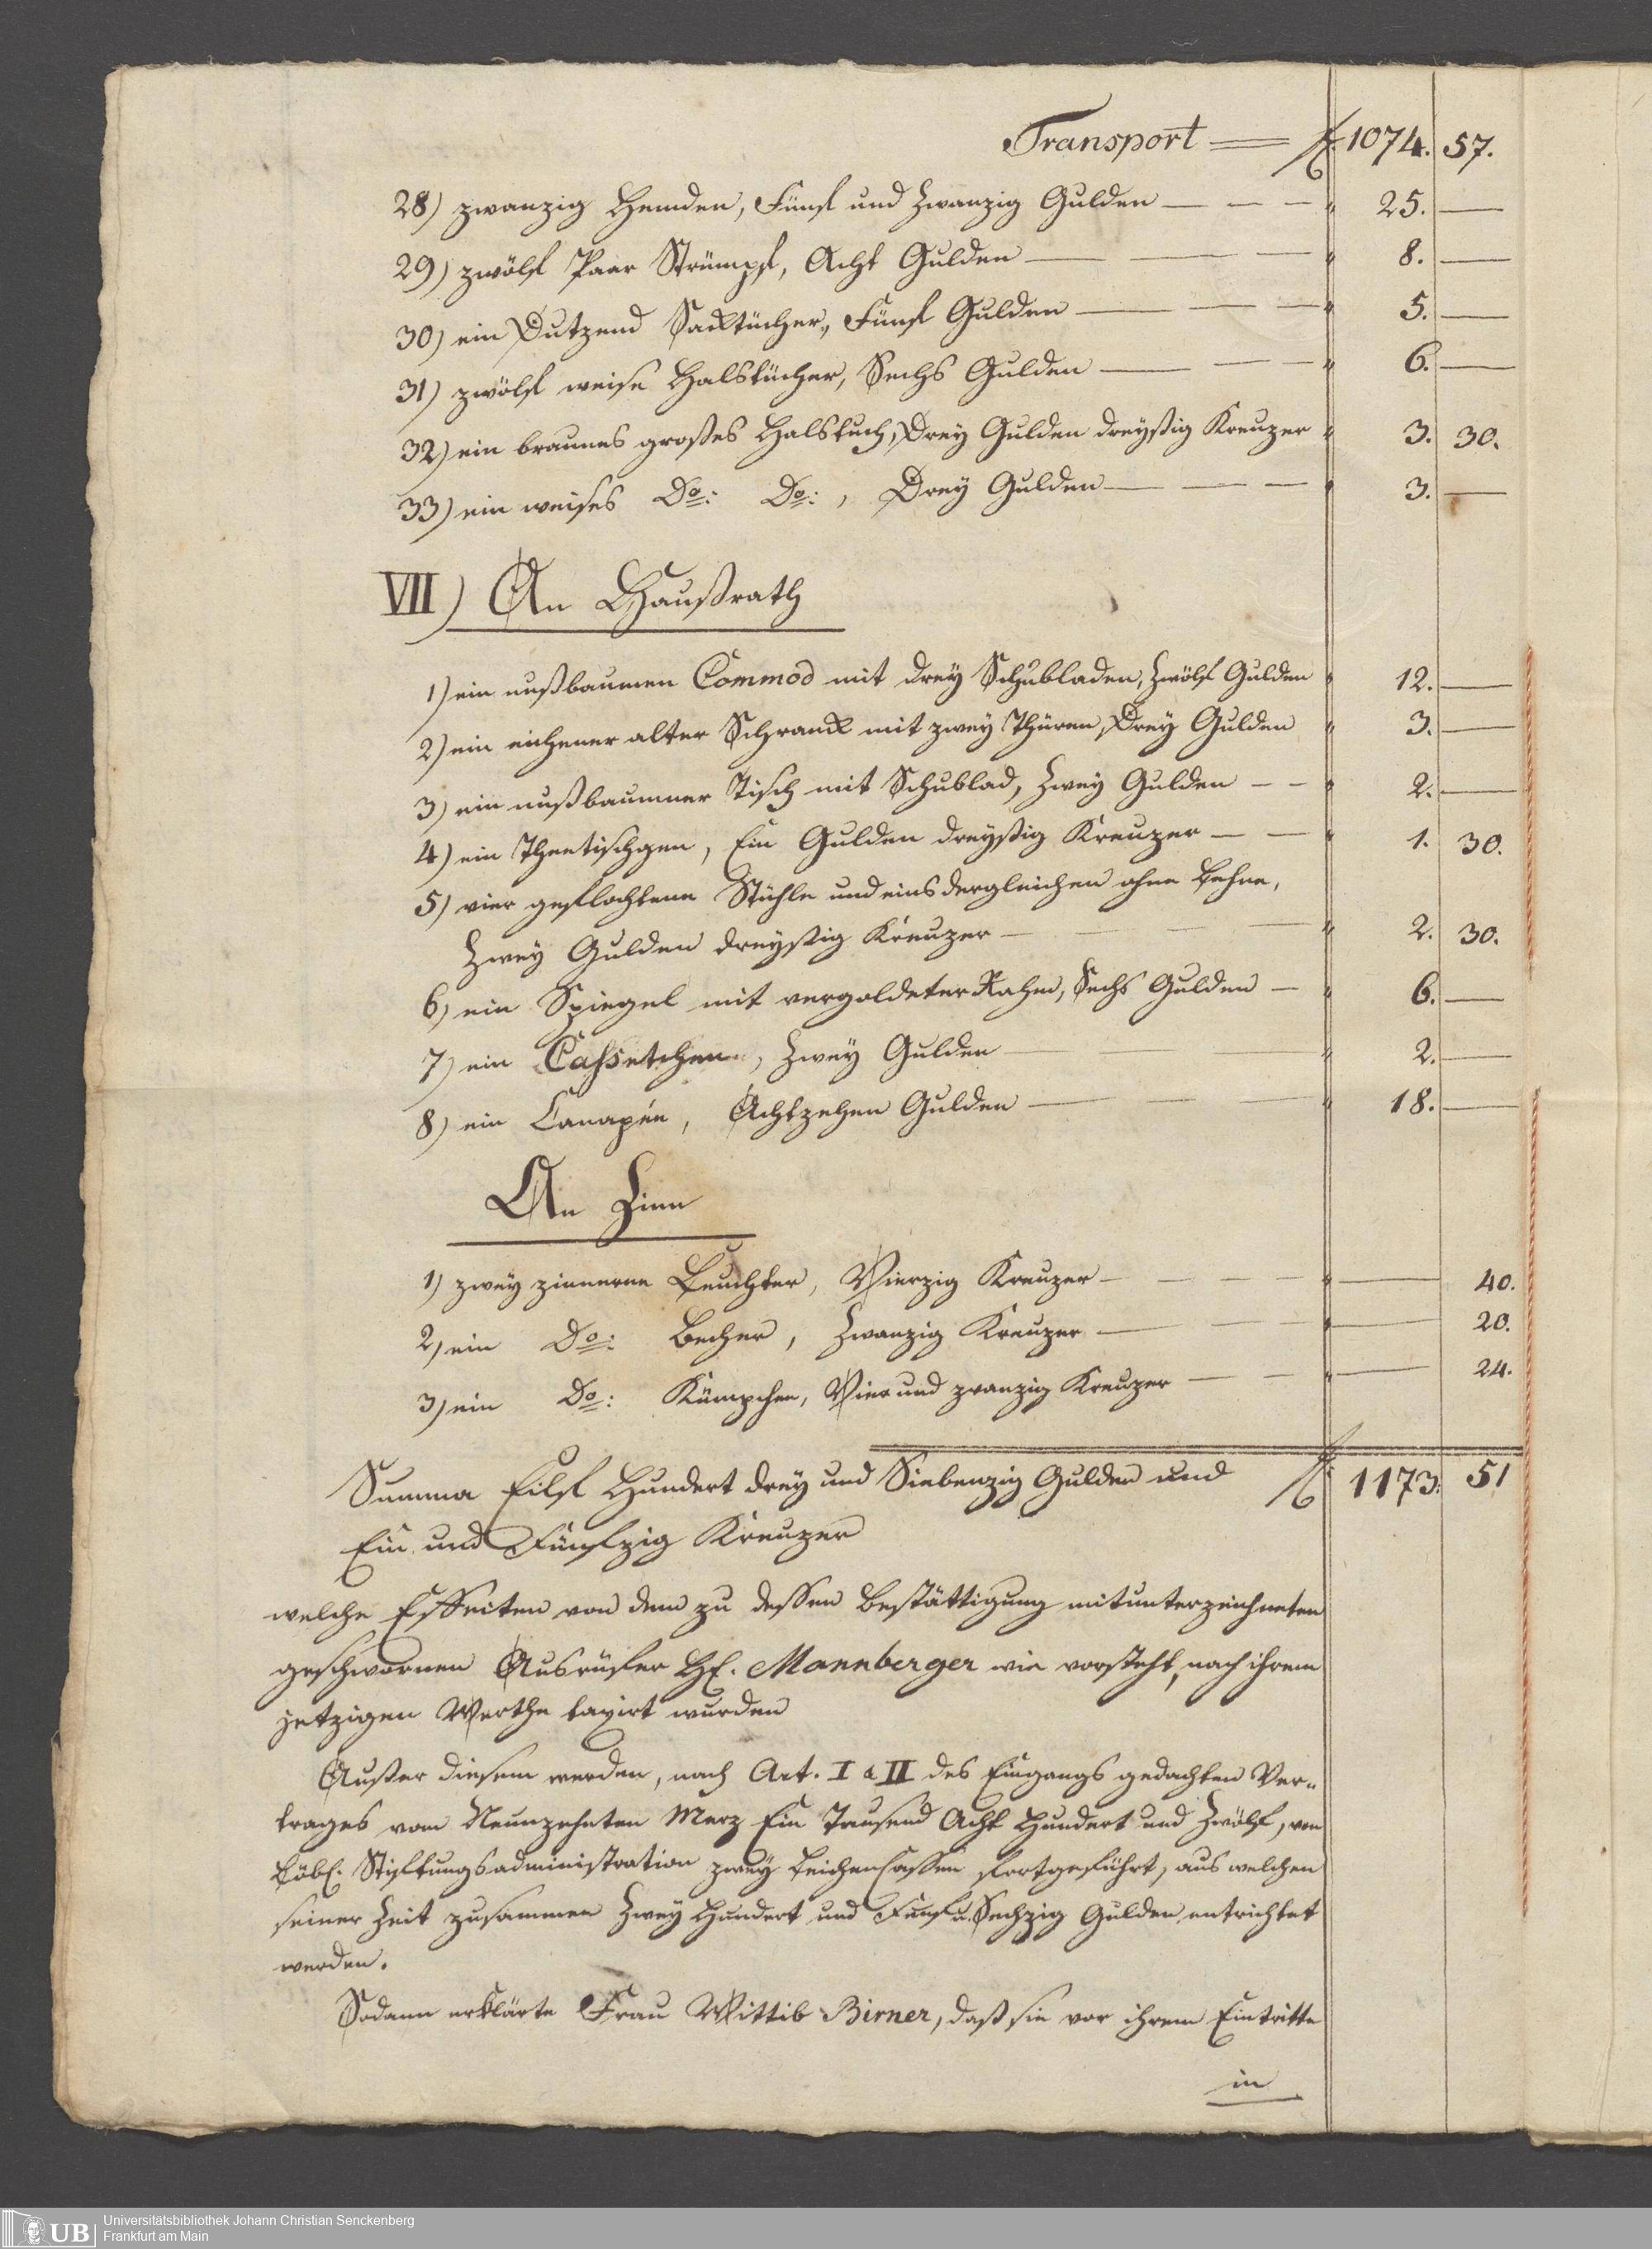 Transport = f. 1074. 57.
28) zwanzig Hemden, Fünf und Zwanzig Gulden — — — " 25. —
29) zwölf Paar Strümpf, Acht Gulden — — — " 8. —
30) ein Dutzend Sacktücher, Fünf Gulden — — — " 5. —
31) zwölf weise Halstücher, Sechs Gulden — — — " 6. —
32) ein braunes großes Halstuch, Drey Gulden dreyßig Kreuzer " 3. 30.
33) ein weises Do: Do:, Drey Gulden — — — " 3. —
VII) An Haußrath
1) ein nußbaumen Commod mit drey Schubladen, Zwölf Gulden " 12. —
2) ein eichener alter Schranck mit zwey Thüren, Drey Gulden " 3. —
3) ein nußbaumner Tisch mit Schublad, Zwey Gulden — — " 2. —
4) ein Theetischgen, Ein Gulden dreyßig Kreuzer — — " 1. 30.
5) vier geflochtene Stühle und eins dergleichen ohne Lehne,
Zwey Gulden dreyßig Kreuzer — — — — " 2. 30.
6) ein Spiegel mit vergoldeter Rahm, Sechs Gulden — " 6. —
7) ein Cassetchen, Zwey Gulden — — — " 2. —
8) ein Canapée, Achtzehen Gulden — — — " 18. —
An Zinn
1) zwey zinnerne Leuchter, Vierzig Kreuzer — — — — " — 40.
2) ein Do: Becher, Zwanzig Kreuzer — — — " — 20.
3) ein Do: Kümpchen, Vier und zwanzig Kreuzer — — " — 24.
Summa Eilf Hundert drey und Siebenzig Gulden und f. 1173. 51
Ein und Fünfzig Kreuzer
welche Effecten von dem zu dessen Bestättigung mitunterzeichneten
geschwornen Ausrüfer H. Mannberger wie vorsteht, nach ihrem
jetzigen Werthe taxirt wurden
Außer diesem werden, nach Art. I & II des Eingangs gedachten Ver„
trages vom Neunzehnten Merz Ein Tausend Acht Hundert und Zwölf, von
Löbl. Stiftungsadministration zwey Leichencassen fortgeführt, aus welchen
seiner Zeit zusammen Zwey Hundert und Fünf u. Sechzig Gulden entrichtet
werden.
Sodann erklärte Frau Wittib Birner, daß sie vor ihrem Eintritte
in
UB Universitätsbibliothek Johann Christian Senckenberg
Frankfurt am Main